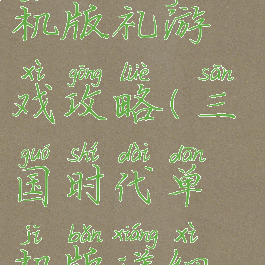 机版礼游
xì gōng lüè sān
戏攻略(三
guó shí dài dān
国时代单
jī bǎn xiáng xì
机版详细